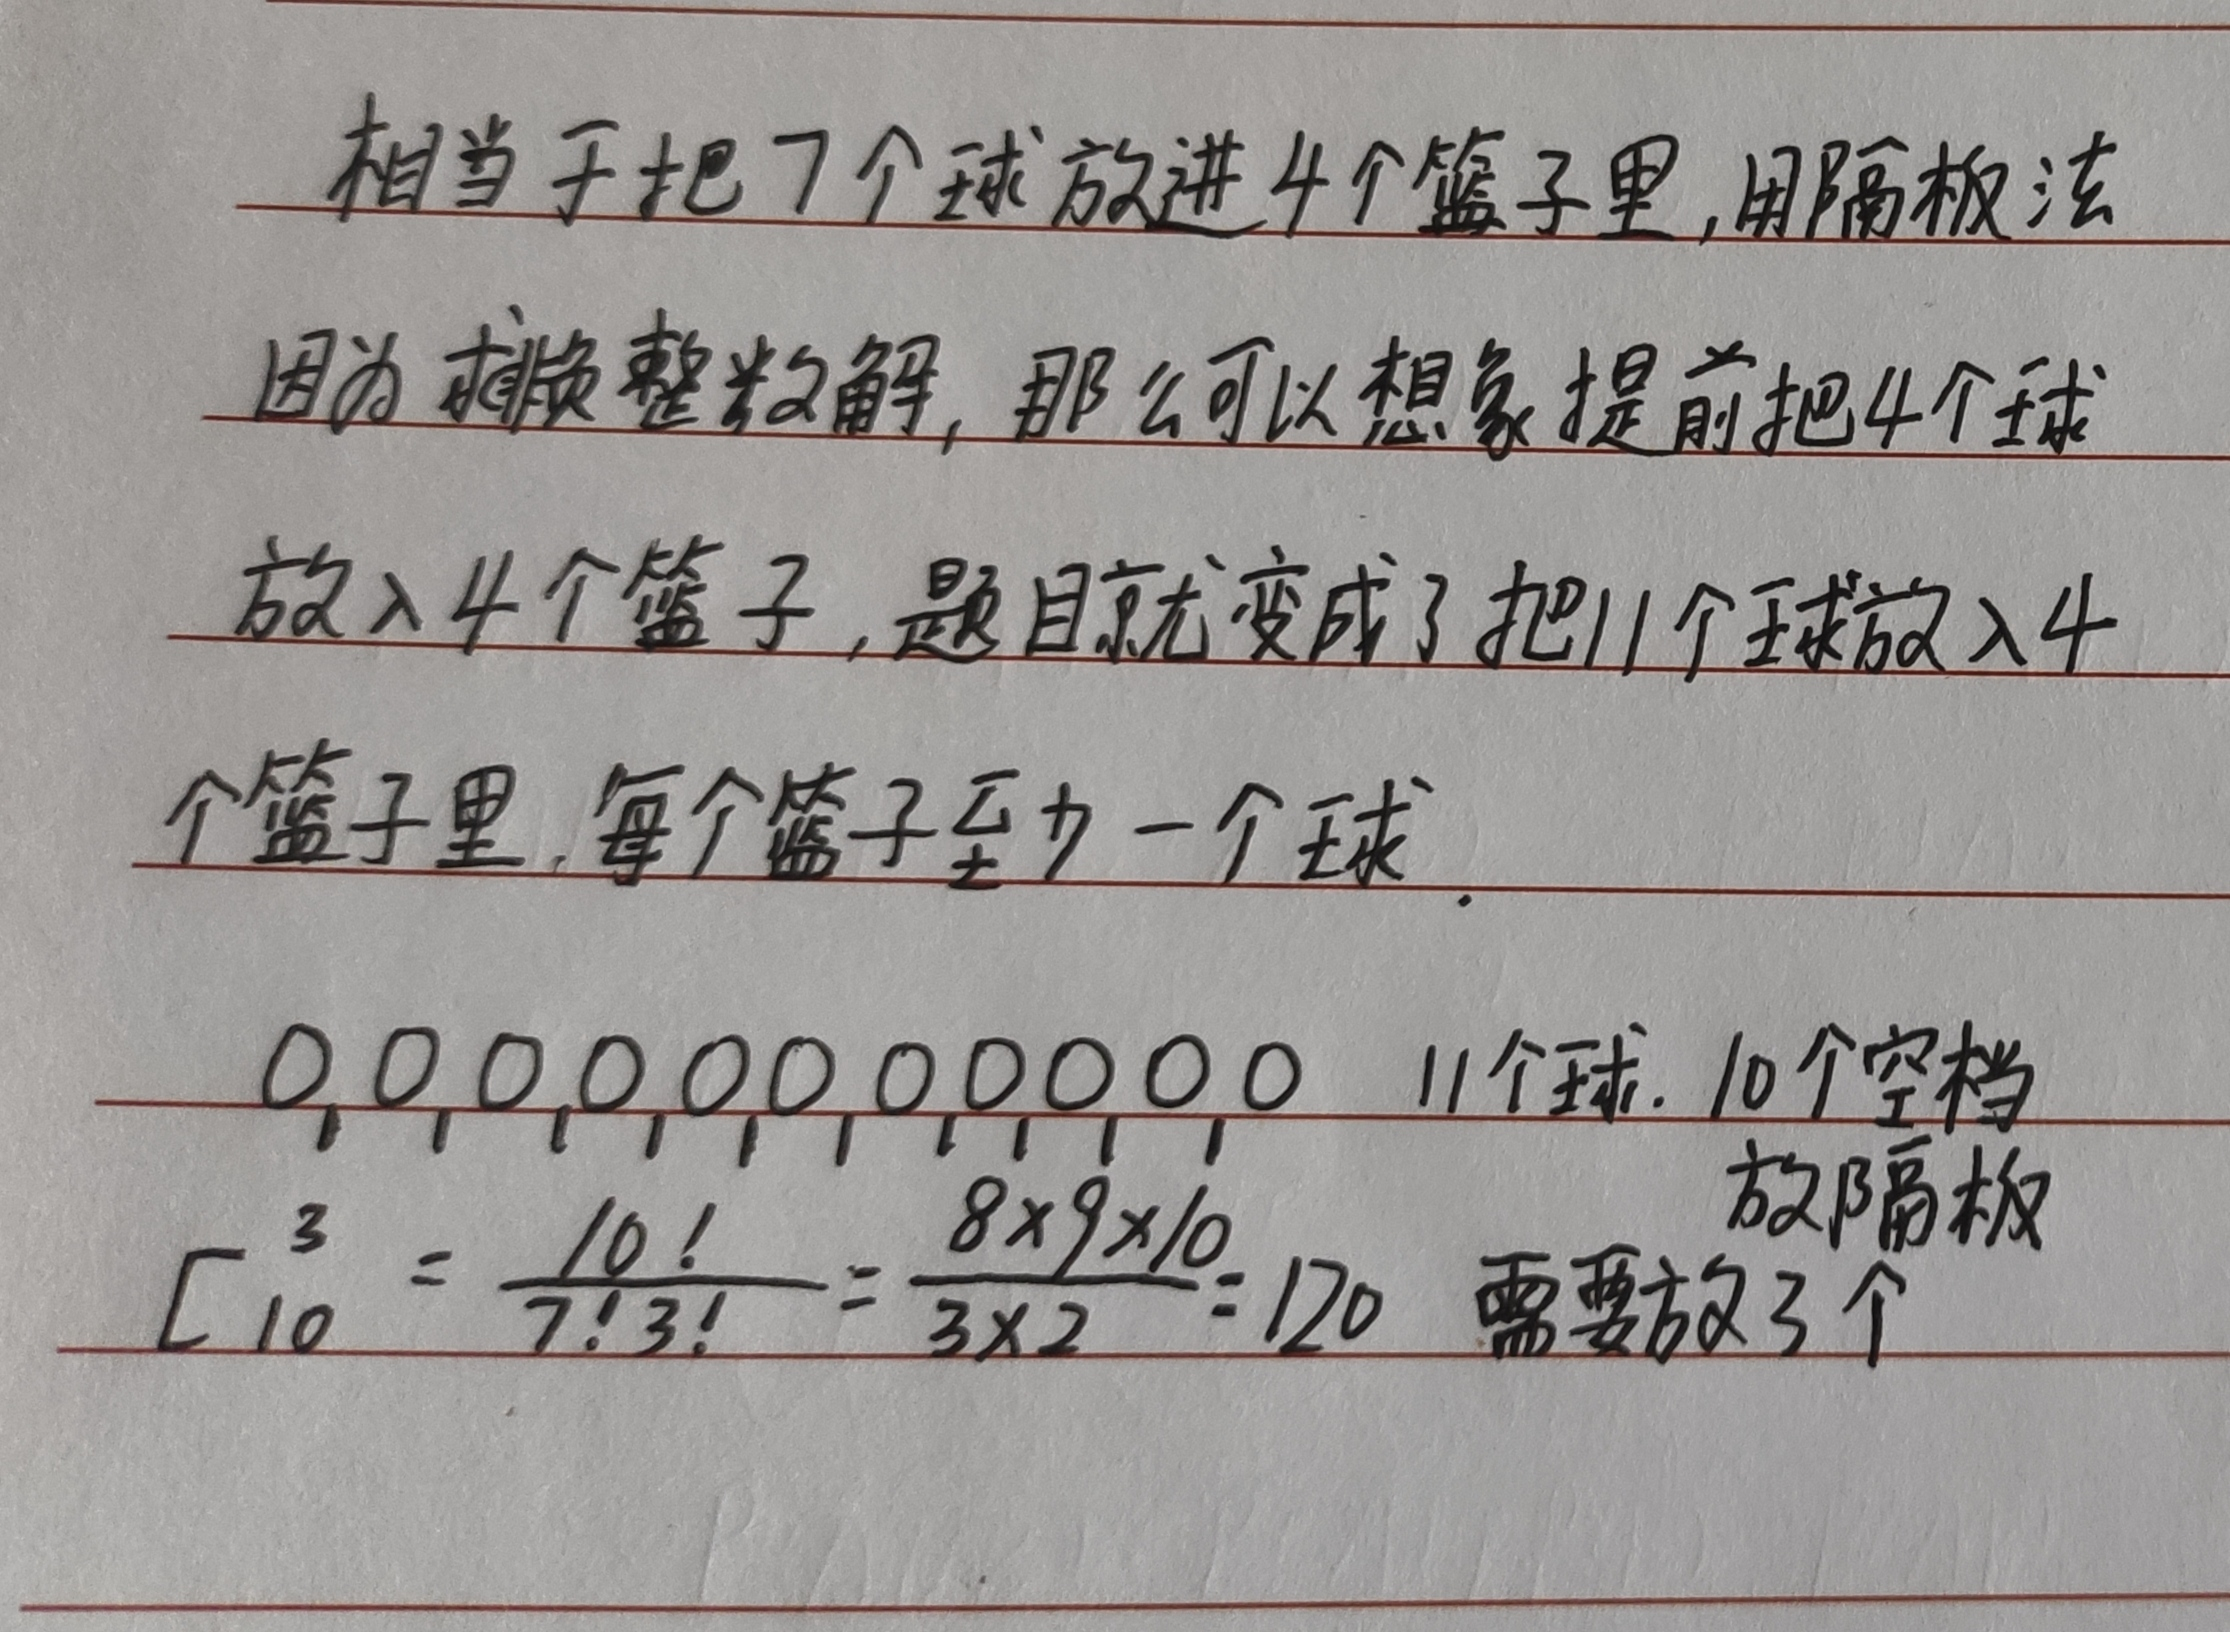 相当于把7个球放进4个篮子里,用隔板法
因为求非负整数解,那么可以想象提前把4个球
放入4个篮子,题目就变成了把11个球放入4
个篮子里,每个篮子至少一个球.
0 0 0 0 0 0 0 0 0 0 0 11个球. 10个空档
放隔板
C₁₀³ = 10!/7!3! = 8×9×10/3×2 = 120 需要放3个